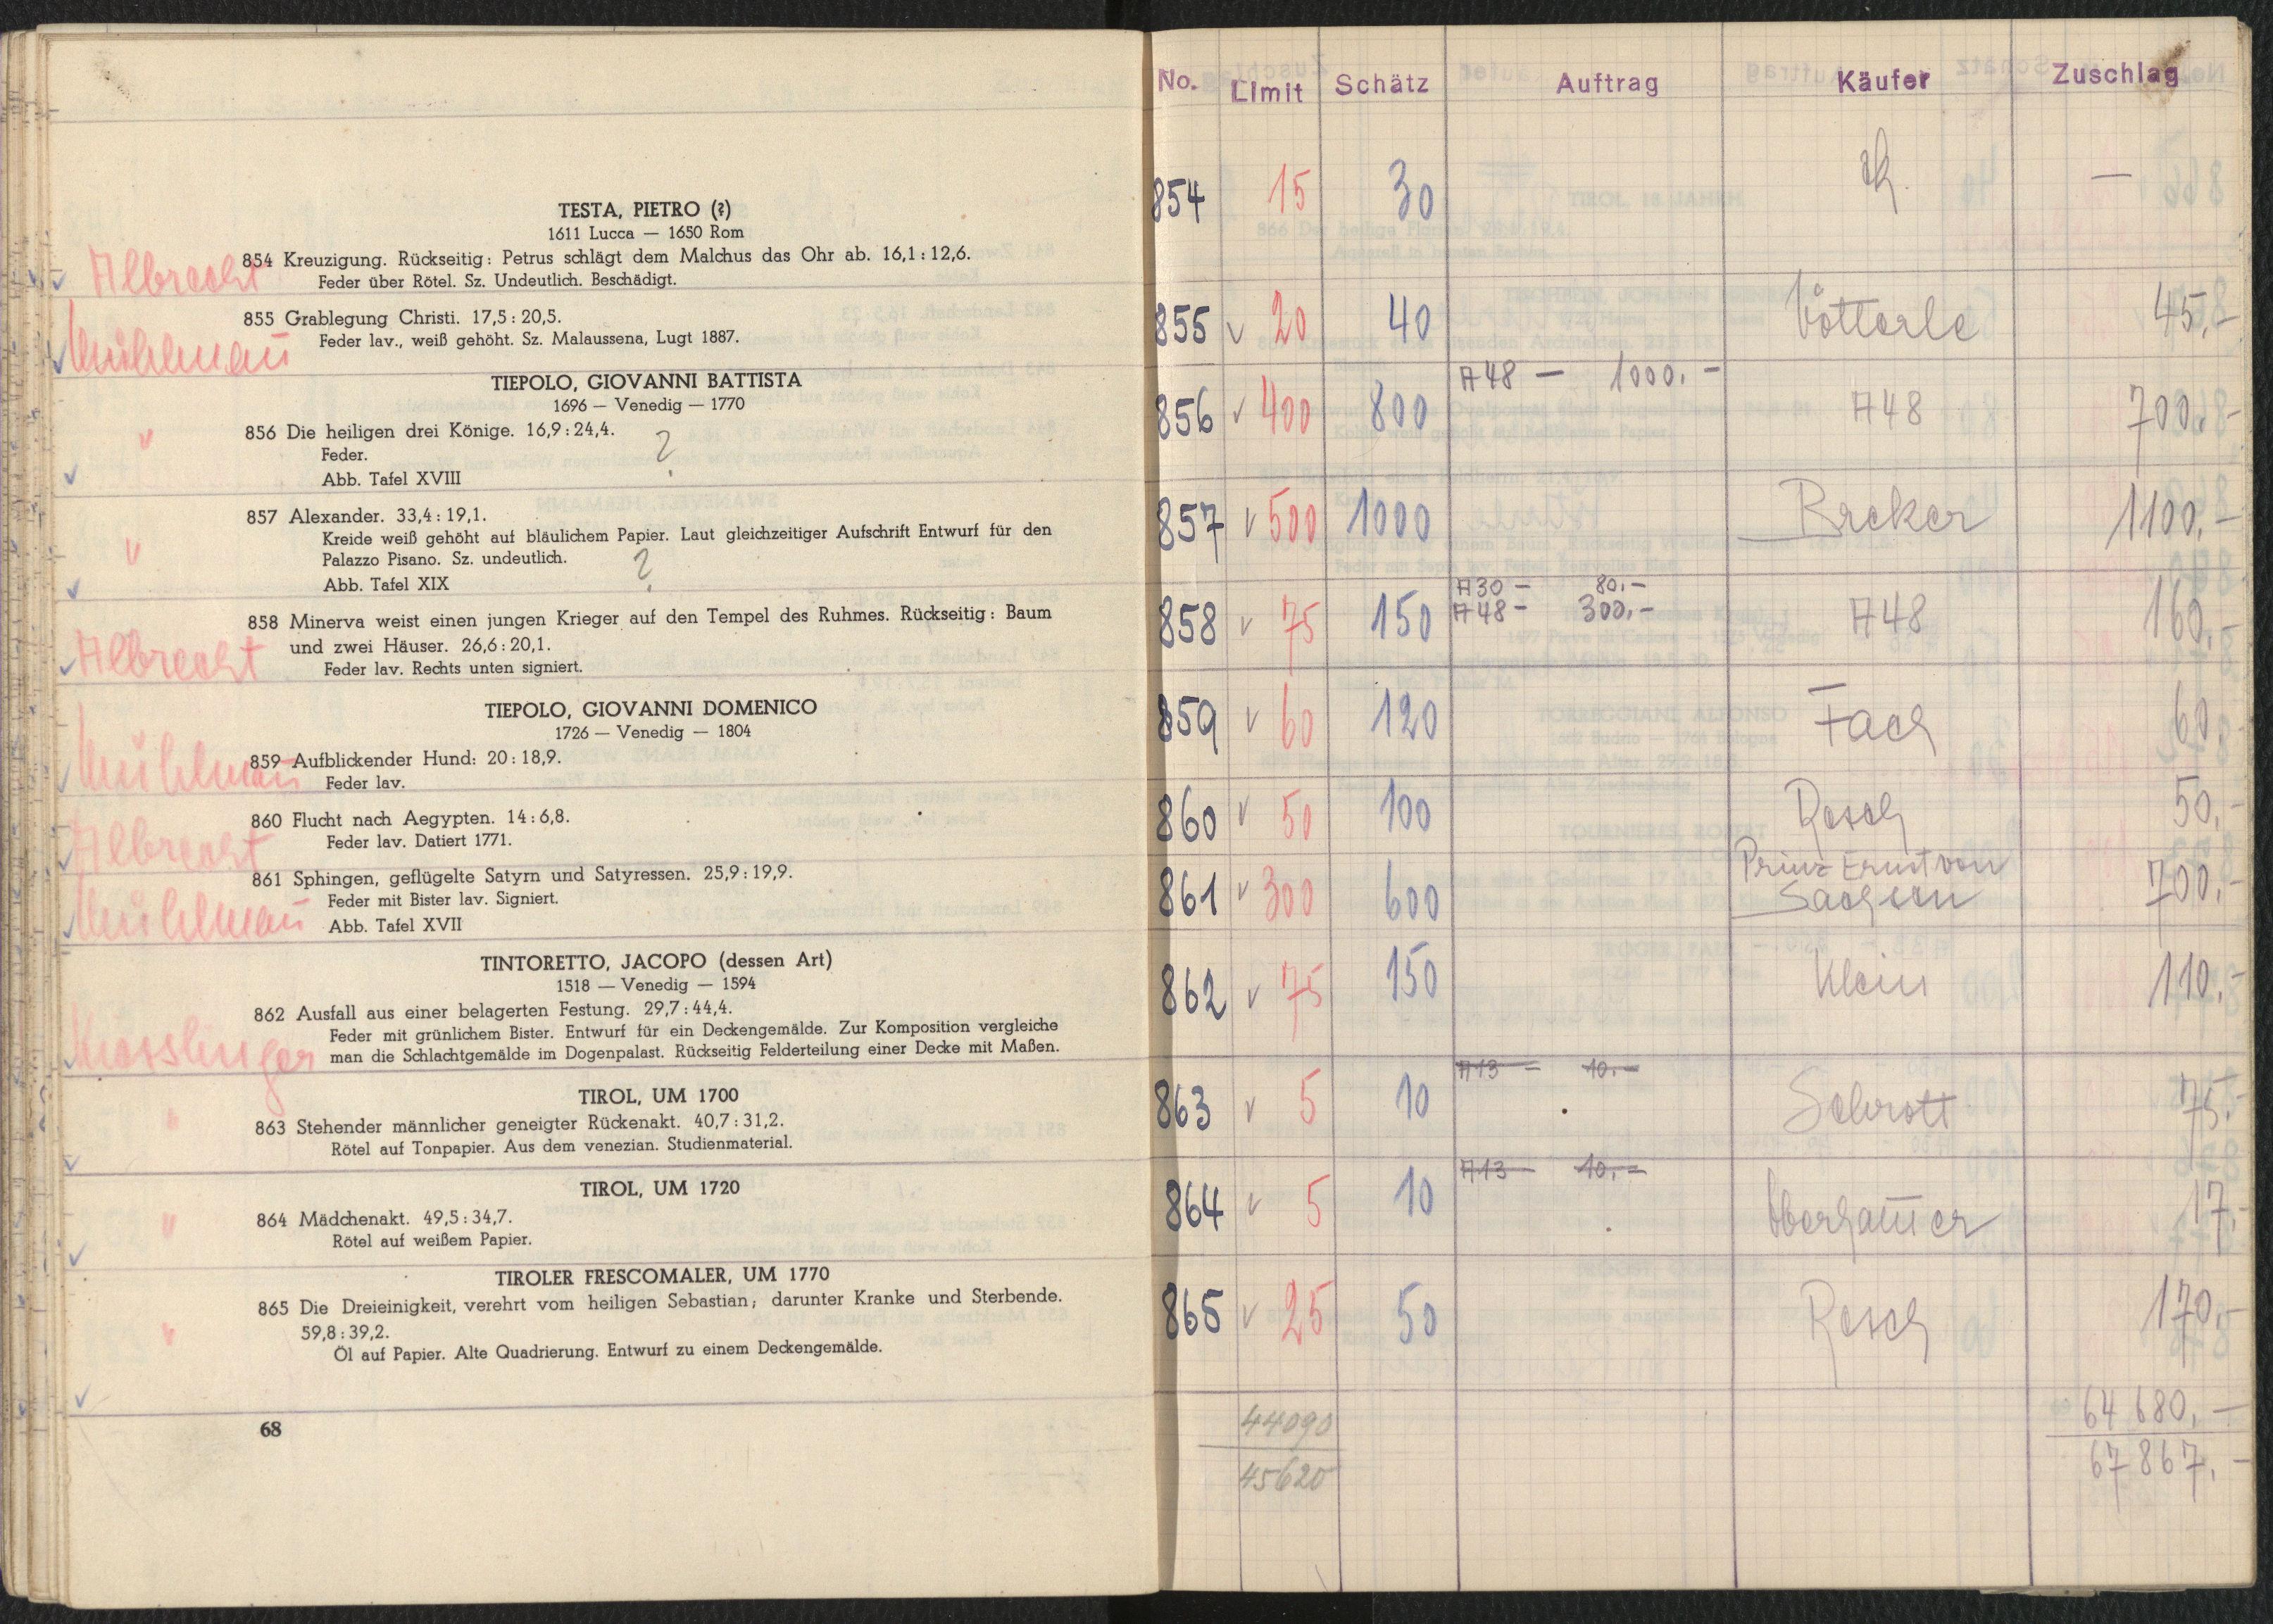 TESTA, PIETRO (?)
1611 Lucca — 1650 Rom
Albrecht 854 Kreuzigung. Rückseitig: Petrus schlägt dem Malchus das Ohr ab. 16,1 : 12,6.
Feder über Rötel. Sz. Undeutlich. Beschädigt.
855 Grablegung Christi. 17,5 : 20,5.
Mühlmann Feder lav., weiß gehöht. Sz. Malaussena, Lugt 1887.
TIEPOLO, GIOVANNI BATTISTA
1696 — Venedig — 1770
" 856 Die heiligen drei Könige. 16,9 : 24,4. ?
Feder.
Abb. Tafel XVIII
857 Alexander. 33,4 : 19,1.
" Kreide weiß gehöht auf bläulichem Papier. Laut gleichzeitiger Aufschrift Entwurf für den
Palazzo Pisano. Sz. undeutlich. ?
Abb. Tafel XIX
858 Minerva weist einen jungen Krieger auf den Tempel des Ruhmes. Rückseitig: Baum
Albrecht und zwei Häuser. 26,6 : 20,1.
Feder lav. Rechts unten signiert.
TIEPOLO, GIOVANNI DOMENICO
1726 — Venedig — 1804
Mühlmann 859 Aufblickender Hund: 20 : 18,9.
Feder lav.
860 Flucht nach Aegypten. 14 : 6,8.
Albrecht Feder lav. Datiert 1771.
861 Sphingen, geflügelte Satyrn und Satyressen. 25,9 : 19,9.
Mühlmann Feder mit Bister lav. Signiert.
Abb. Tafel XVII
TINTORETTO, JACOPO (dessen Art)
1518 — Venedig — 1594
862 Ausfall aus einer belagerten Festung. 29,7 : 44,4.
Feder mit grünlichem Bister. Entwurf für ein Deckengemälde. Zur Komposition vergleiche
man die Schlachtgemälde im Dogenpalast. Rückseitig Felderteilung einer Decke mit Maßen.
TIROL, UM 1700
" 863 Stehender männlicher geneigter Rückenakt. 40,7 : 31,2.
Rötel auf Tonpapier. Aus dem venezian. Studienmaterial.
TIROL, UM 1720
" 864 Mädchenakt. 49,5 : 34,7.
Rötel auf weißem Papier.
TIROLER FRESCOMALER, UM 1770
865 Die Dreieinigkeit, verehrt vom heiligen Sebastian; darunter Kranke und Sterbende.
" 59,8 : 39,2.
Öl auf Papier. Alte Quadrierung. Entwurf zu einem Deckengemälde.
68
No. Limit Schätz Auftrag Käufer Zuschlag
854 15 30 —
855 20 40 Vötterle 45,-
856 400 800 A48 — 1000.- A48 700.-
857 500 1000 Breker 1100,-
A30 — 80,-
858 75 150 A48 - 300,- A48 160,-
859 60 120 Fach 60,-
860 50 100 Resch 50,-
Prinz Ernst von
861 300 600 Sachsen 700,-
862 75 150 Klein 110,-
863 5 10 A13 — 10,- Schrott 75,-
864 5 10 A13 — 10,- 17,-
865 25 50 Resch 170,-
44090 64 680,-
45620 67 867,-